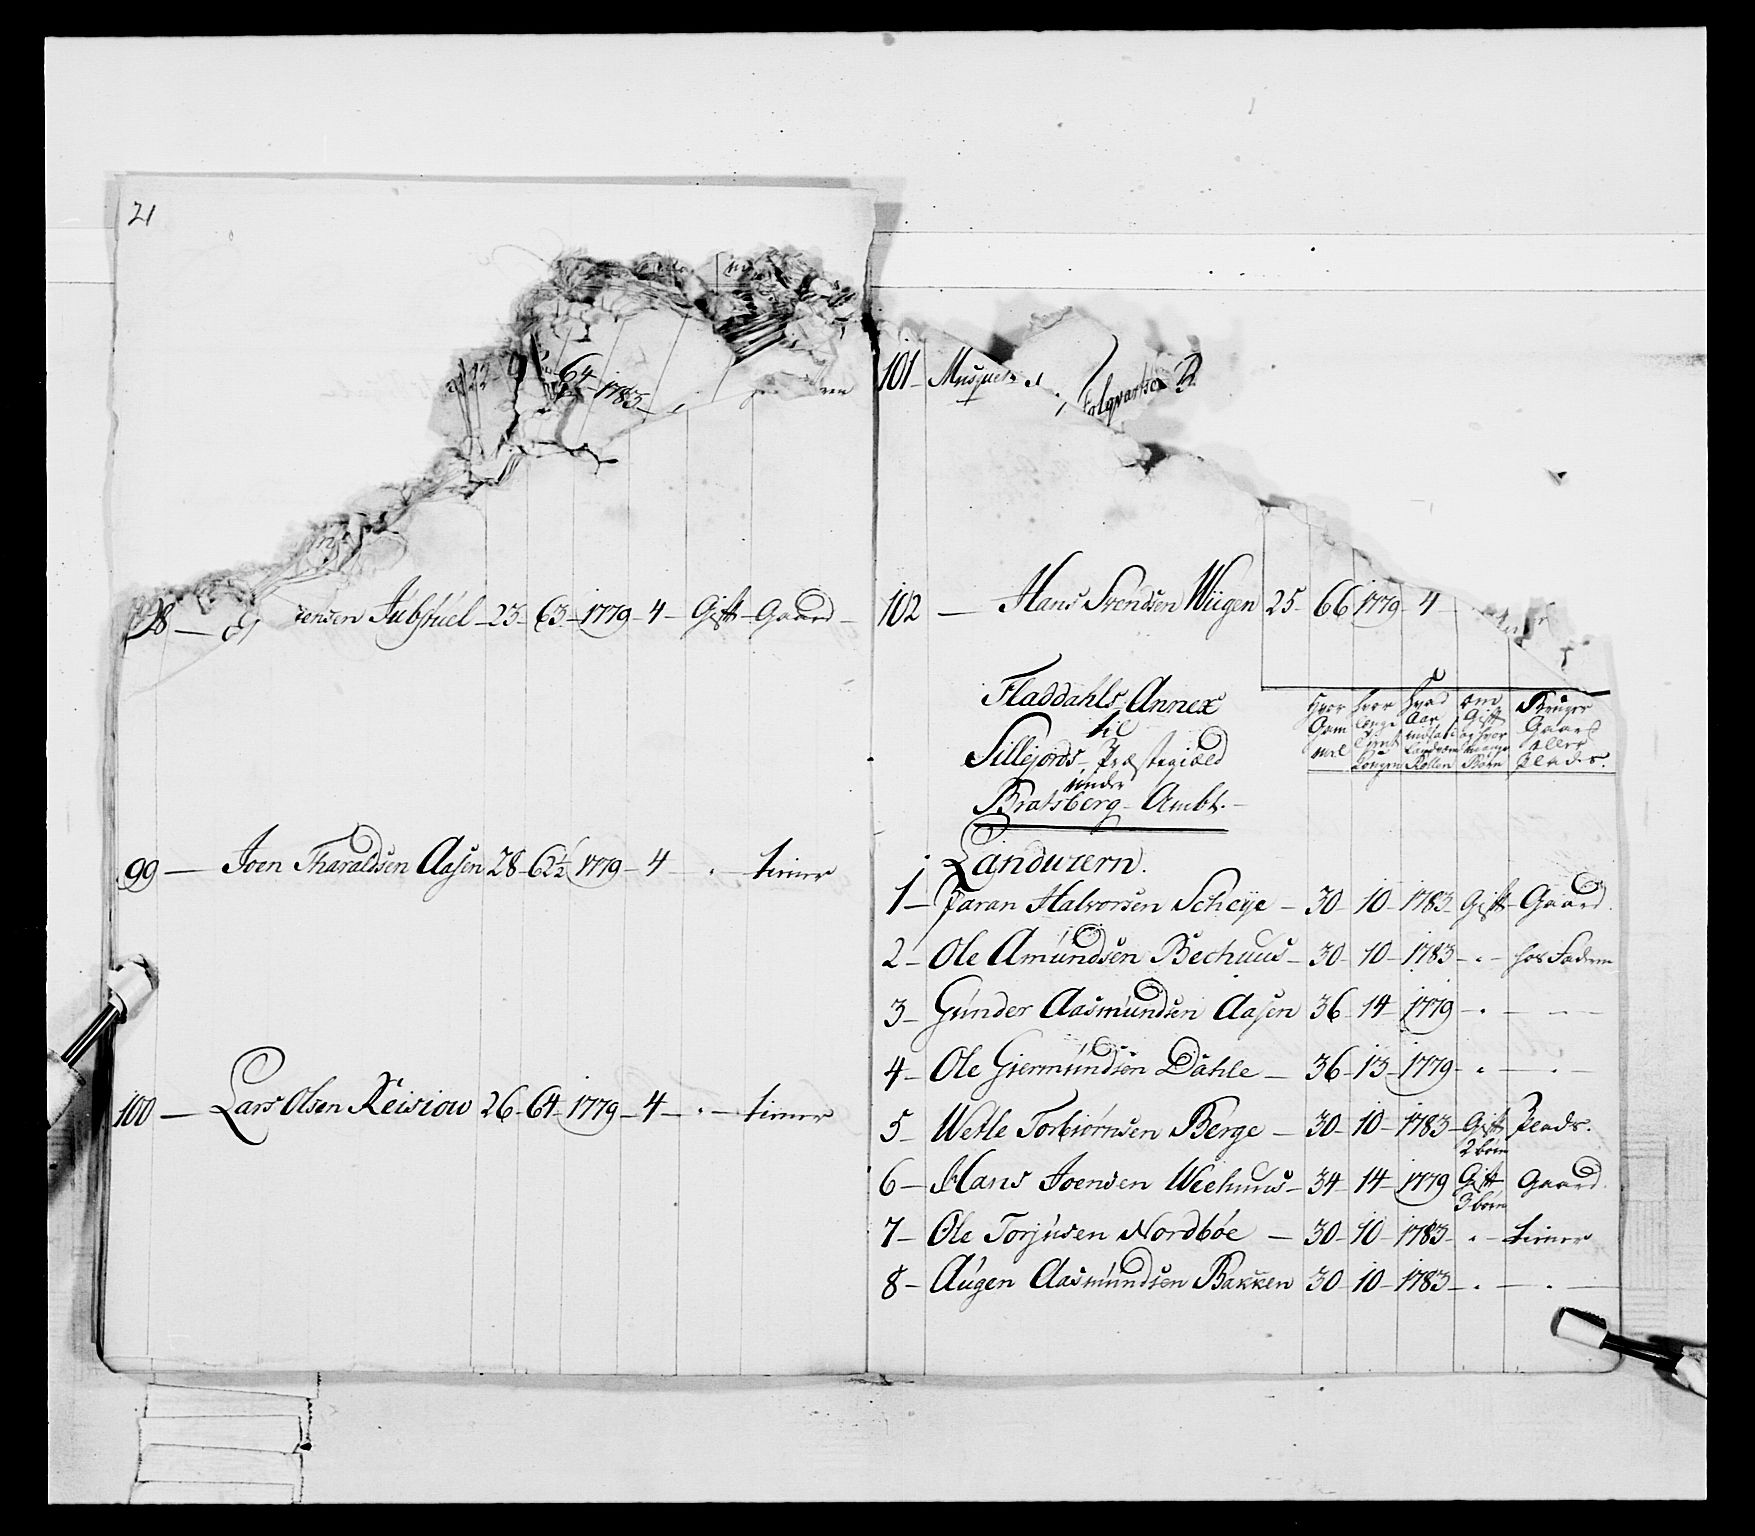 21
64
1783
101 - Musquet
98 - ensen Jubskuel - 23 - 63 - 1779 - 4 - Gift - Gaard -
102 - Hans Svendsen Wiigen 25 - 66 1779 - 4 -
Fladdahls Annex
til
Sillejords Præstegiæld
under
Bratsberg Ambt.
Hvor Gam mel
hvor længe tient Kongen
Hvad Aar indsat i Landværn Rollen
om Gift og hvor mange Børn
Bruger Gaard eller Plads.
99 - Joen Tharaldsen Aasen 28 - 62½ 1779 - 4 - " - tiener
Landværn.
1 - Taran Halvorsen Scheye - 30 - 10 - 1783 - Gift - Gaard.
2 - Ole Amundsen Bechuus - 30 - 10 - 1783 - " - hos Faderen
3 - Gunder Aasmundsen Aasen 36 - 14 - 1779 - " -
4 - Ole Giermundsen Dahle - 36 - 13 - 1779 - " - " -
100 - Lars Olsen Reisiow 26 - 64 - 1779 - 4 - " - tiener
5 - Wetle Torbiørnsen Berge - 30 - 10 - 1783 - Gift 2 børn Plads.
6 - Hans Joensen Weehuus - 34 - 14 - 1779 Gift 3 børn Gaard.
7 - Ole Torjusen Nordbøe - 30 - 10 - 1783 - " - tiener
8 - Augen Aasmundsen Bakken 30 - 10 - 1783 - " - " -